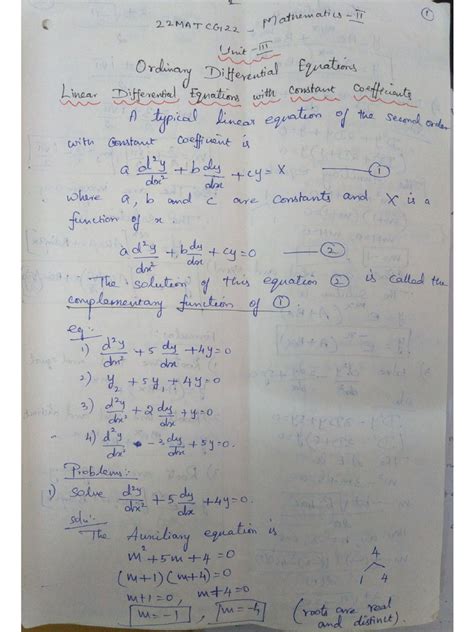 ①
22MATCG122 - Mathematics-II
Unit-III
Ordinary Differential Equations
Linear Differential Equations with Constant Coefficients
A typical linear equation of the second order
with Constant coefficient is
a d²y/dx² + b dy/dx + cy = X — ①
where a, b and c are constants and X is a
function of x
a d²y/dx² + b dy/dx + cy = 0 — ②
The solution of this equation ② is called the
complementary function of ①
eg:-
1) d²y/dx² + 5 dy/dx + 4y = 0
2) y₂ + 5y₁ + 4y = 0
3) d²y/dx² + 2 dy/dx + y = 0
4) d²y/dx² - 3 dy/dx + 5y = 0.
Problems:-
1) Solve d²y/dx² + 5 dy/dx + 4y = 0.
soln:-
The Auxiliary equation is
m² + 5m + 4 = 0
4
1 4
(m+1)(m+4) = 0
m+1 = 0, m+4 = 0
m = -1, m = -4
(roots are real
and distinct).